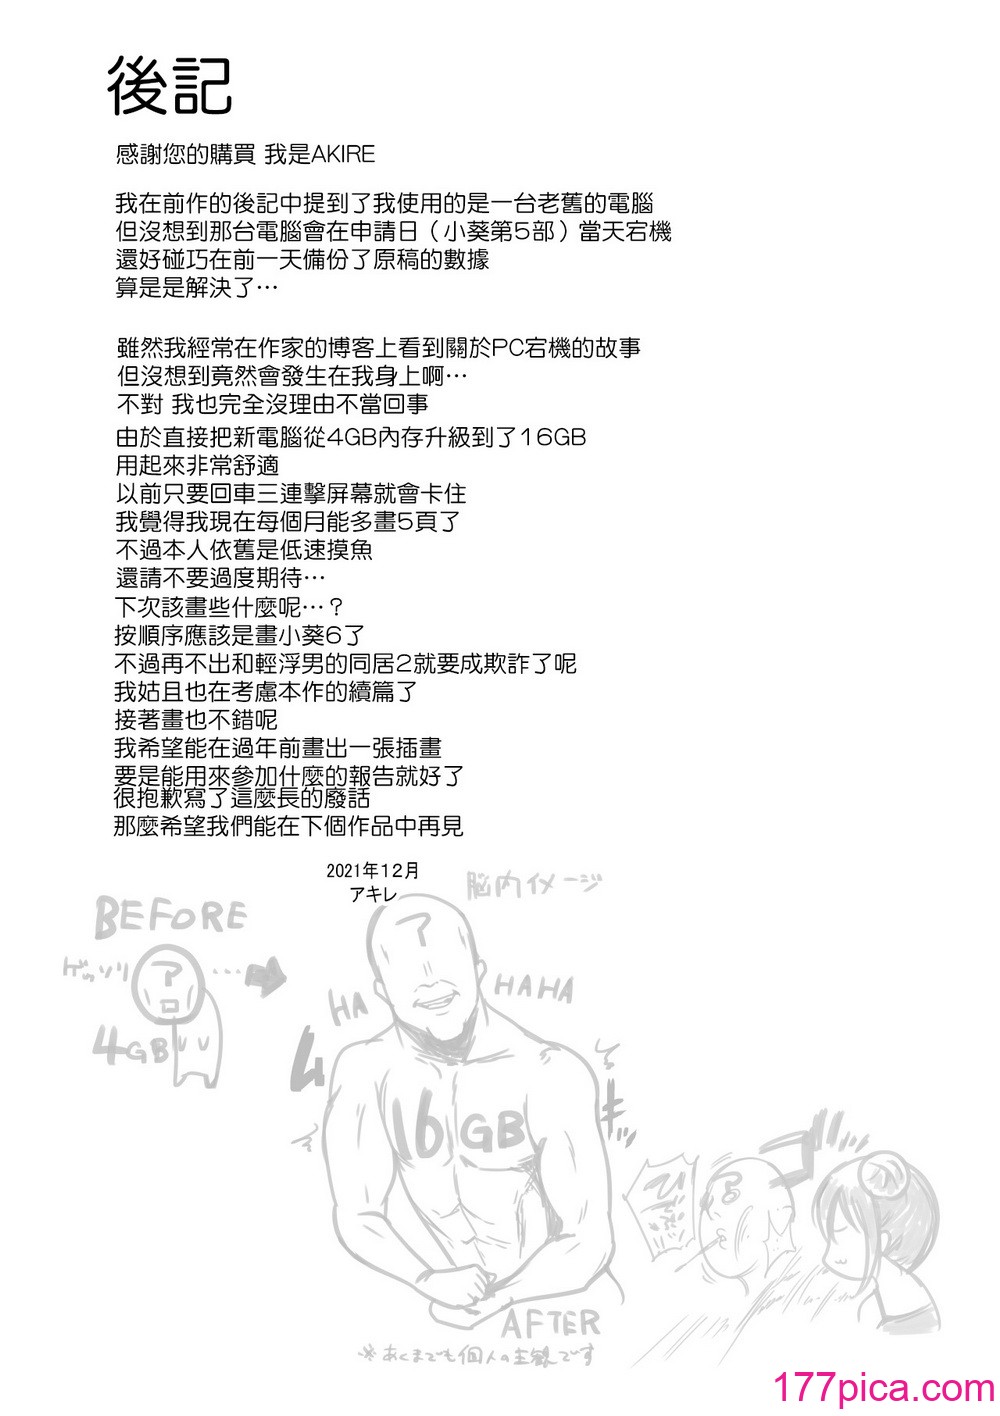 後記
感謝您的購買 我是AKIRE
我在前作的後記中提到了我使用的是一台老舊的電腦
但沒想到那台電腦會在申請日（小葵第5部）當天宕機
還好碰巧在前一天備份了原稿的數據
算是是解決了…
雖然我經常在作家的博客上看到關於PC宕機的故事
但沒想到竟然會發生在我身上啊…
不對 我也完全沒理由不當回事
由於直接把新電腦從4GB內存升級到了16GB
用起來非常舒適
以前只要回車三連擊屏幕就會卡住
我覺得我現在每個月能多畫5頁了
不過本人依舊是低速摸魚
還請不要過度期待…
下次該畫些什麼呢…？
按順序應該是畫小葵6了
不過再不出和輕浮男的同居2就要成欺詐了呢
我姑且也在考慮本作的續篇了
接著畫也不錯呢
我希望能在過年前畫出一張插畫
要是能用來參加什麼的報告就好了
很抱歉寫了這麼長的廢話
那麼希望我們能在下個作品中再見
2021年12月
アキレ
脳内イメージ
BEFORE
ゲッソリ
ア
…
4GB
ア
HA
HAHA
ム
キ
16GB
AFTER
※あくまでも個人の主観です
177pica.com